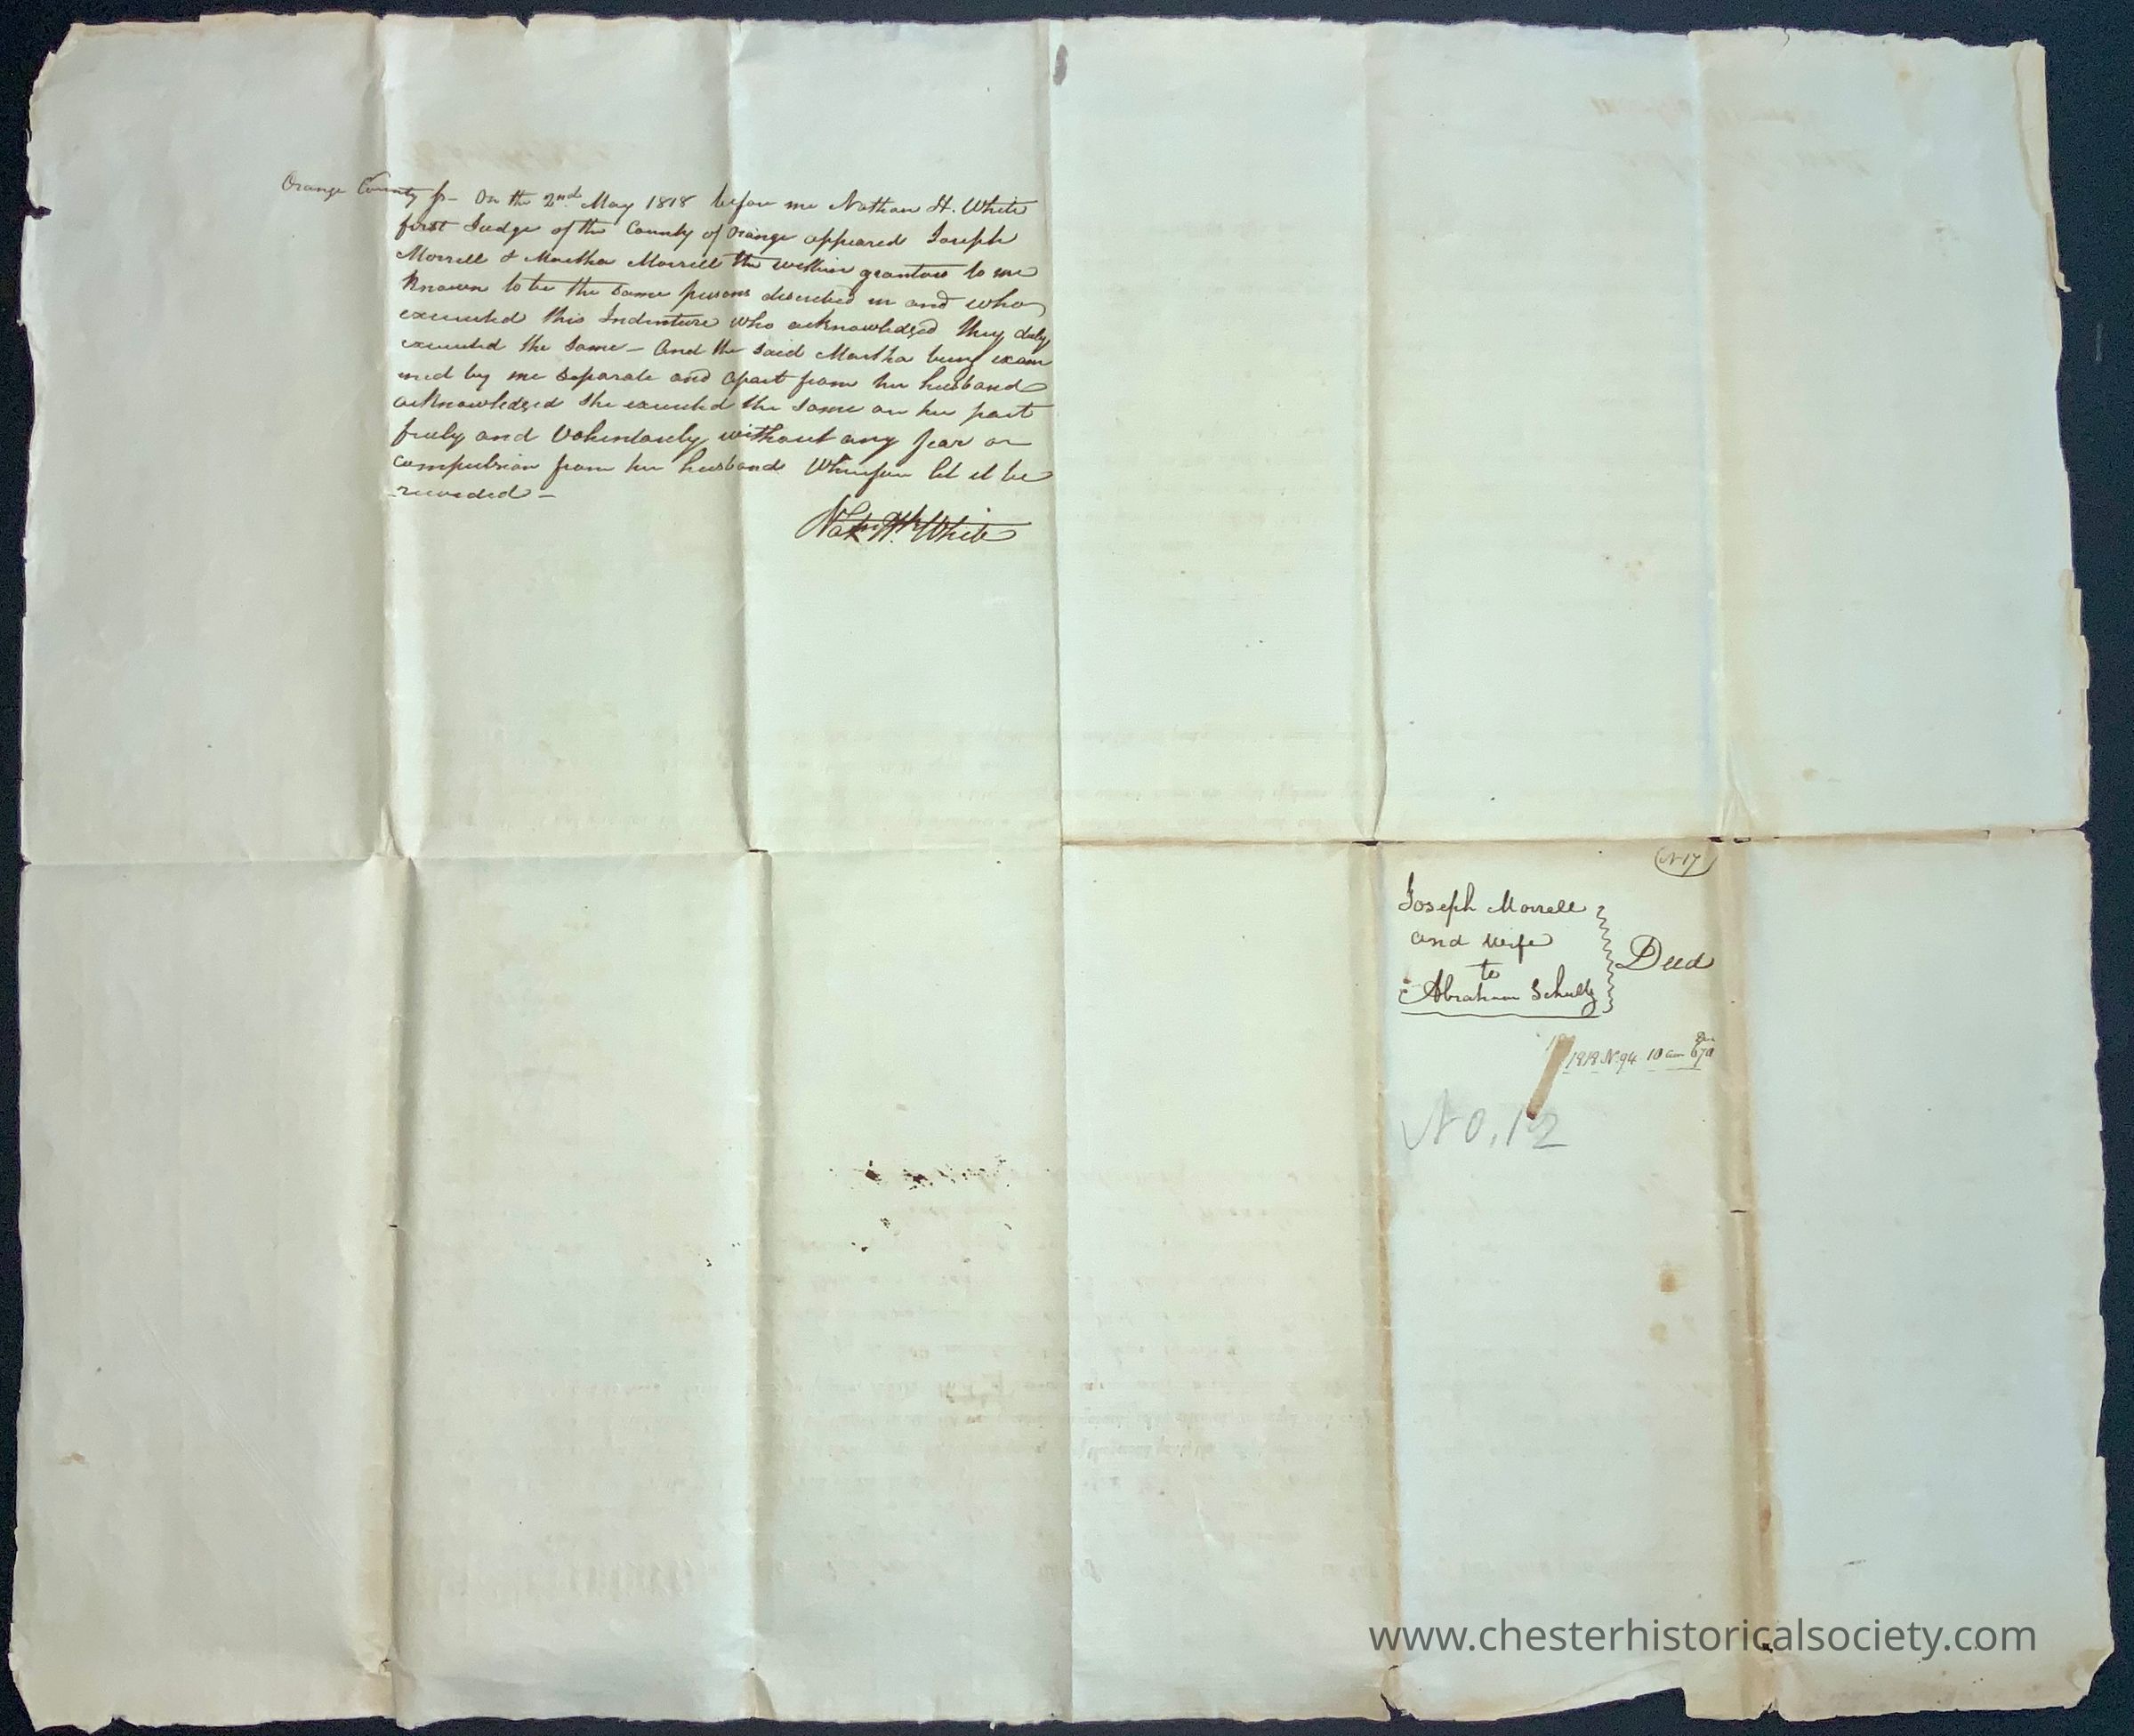 Orange County ss— On the 2nd May 1818 before me Nathan H. White
first Judge of the County of Orange appeared Joseph
Morrell & Martha Morrell the within grantors to me
known to be the same persons described in and who
executed this Indenture who acknowledged they duly
executed the same — and the said Martha being exam
ined by me separate and apart from her husband
acknowledged she executed the same on her part
freely and voluntarily without any fear or
compulsion from her husband Wherefore let it be
recorded —
Nath H. White
N 17
Joseph Morrell
and wife
to
Abraham Schultz
Deed
1818 N. 94 10 am
No. 12
www.chesterhistoricalsociety.com